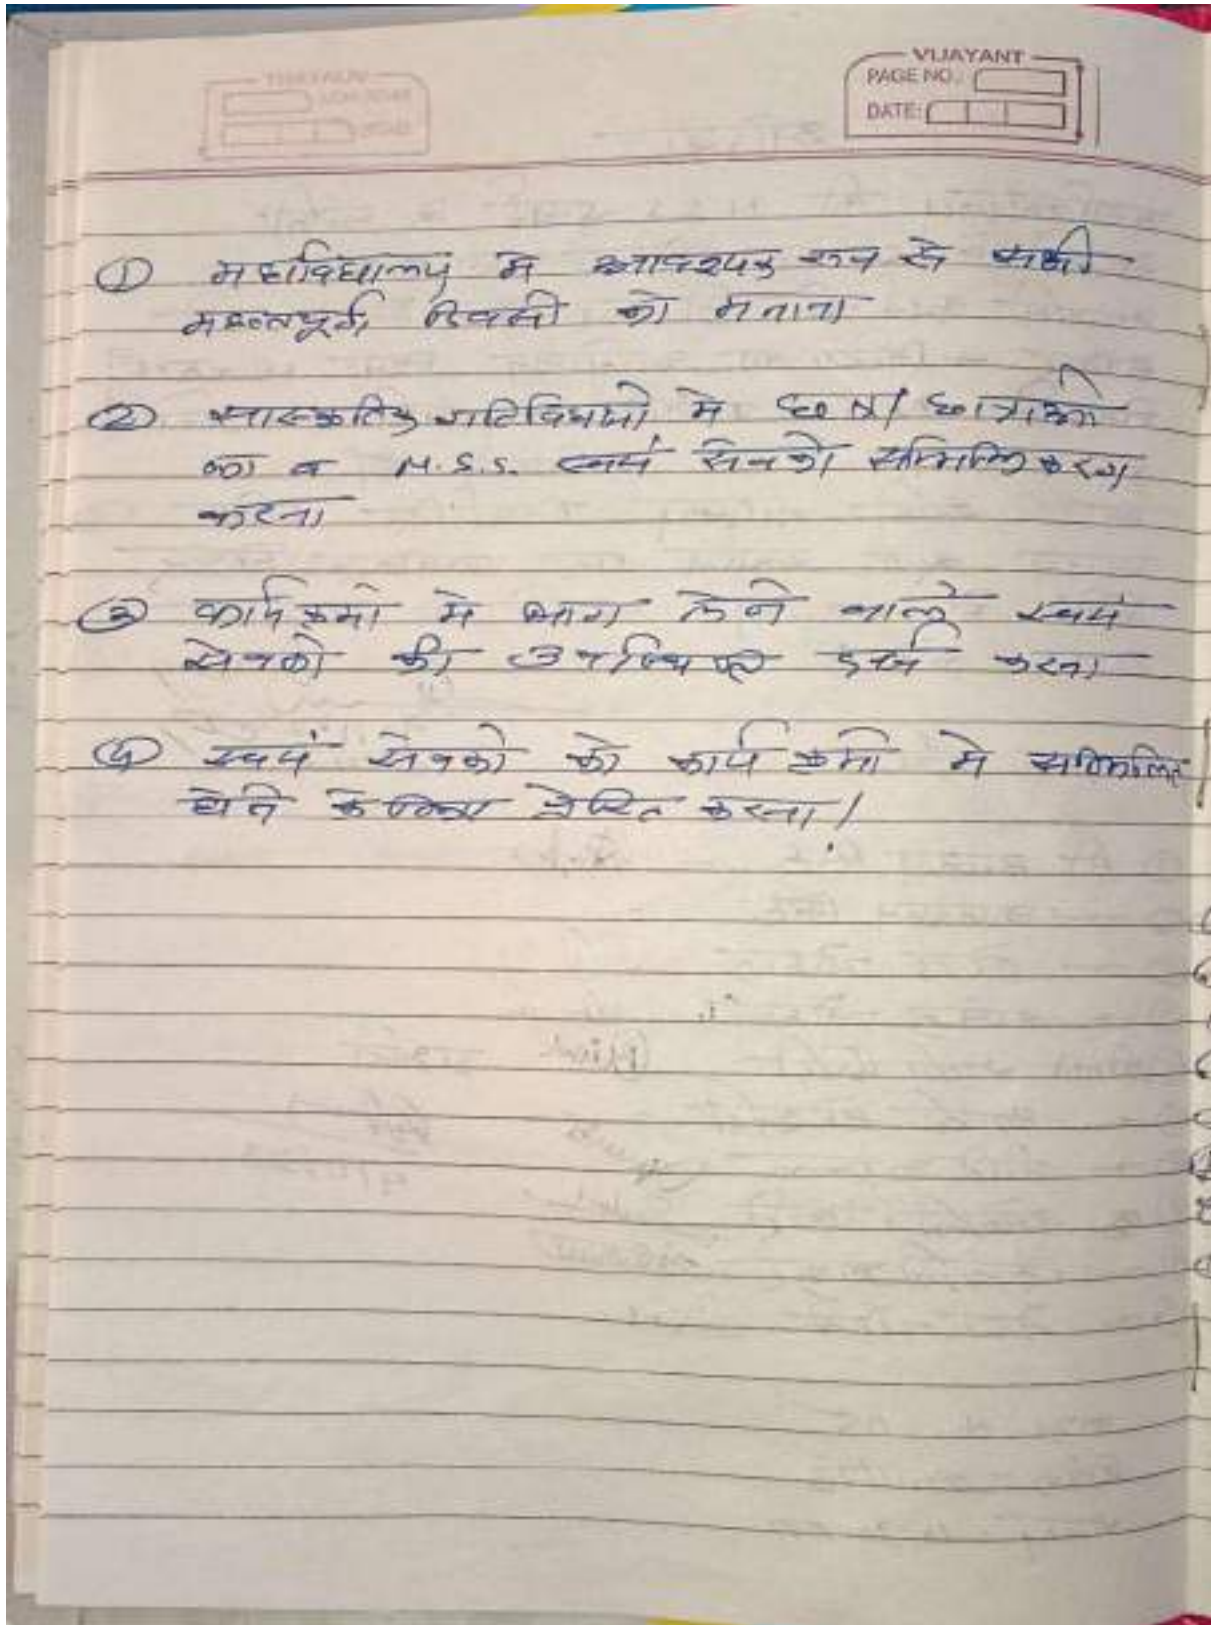 VIJAYANT
PAGE NO.:
DATE:
① महाविद्यालय में आवश्यक रूप से सभी
महत्वपूर्ण दिवसों को मनाना
② सास्कृतिक गतिविधयों में छात्र/छात्राओं
का व N.S.S. स्वयं सेवको सम्मिलिकरण
करना
③ कार्यक्रमो मे भाग लेने वाले स्वयं
सेवको की उपस्थिति दर्ज करना
④ स्वयं सेवको को कार्यक्रमो मे सम्मिलित
होने के लिए प्रेरित करना।